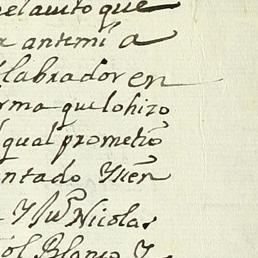 que
antemi a
labrador en
rma que lo hizo
qual prometio
ntado Y en
Y Ju.º Nicolas
ol Blanco Y